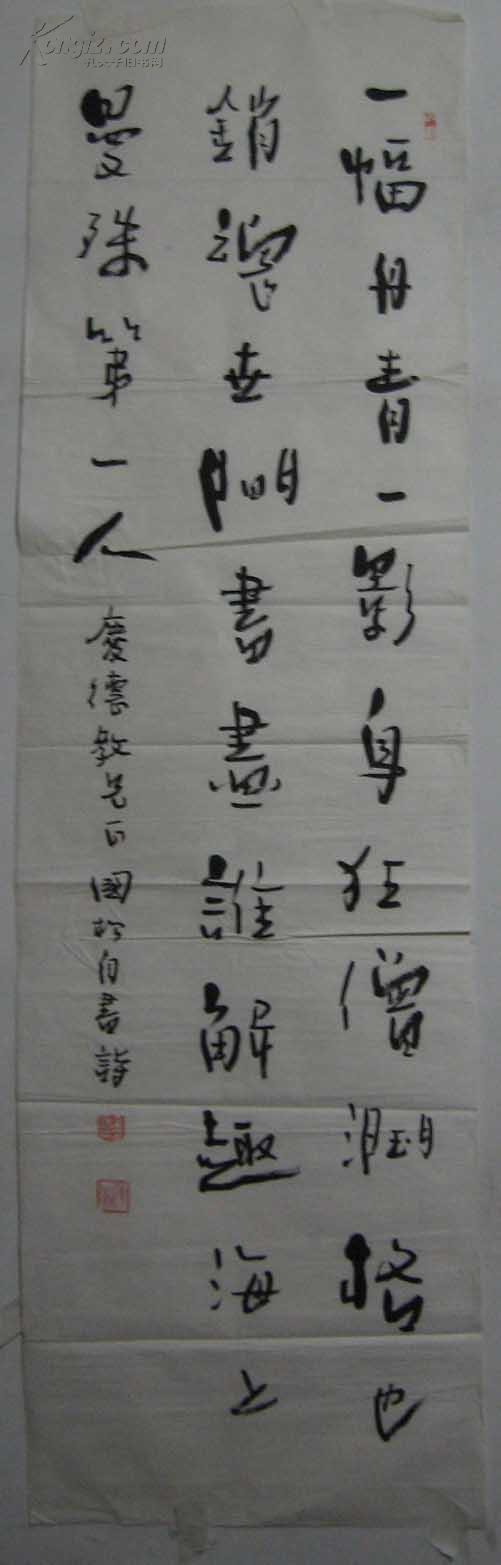 一幅丹青一影身狂僧潤格也
銷魂世間書畫誰解趣海上
曼殊第一人
慶德教兄正國松自書詩
Kongfz.com
孔夫子旧书网